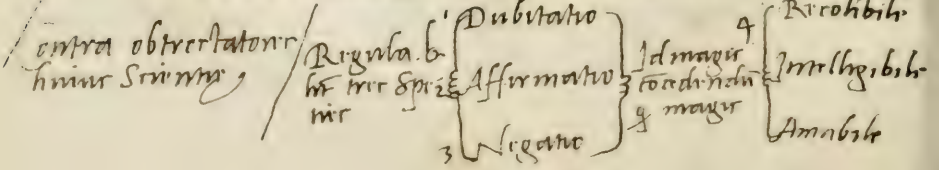 contra obtrectatores
huius Scientiæ
Regula. b.
ht tres Spe
cies
1 Dubitatio
2 Affirmatio
3 Negatio
Id magis
cōcedendū
q magis
4
Recolibile
Intelligibile
Amabile